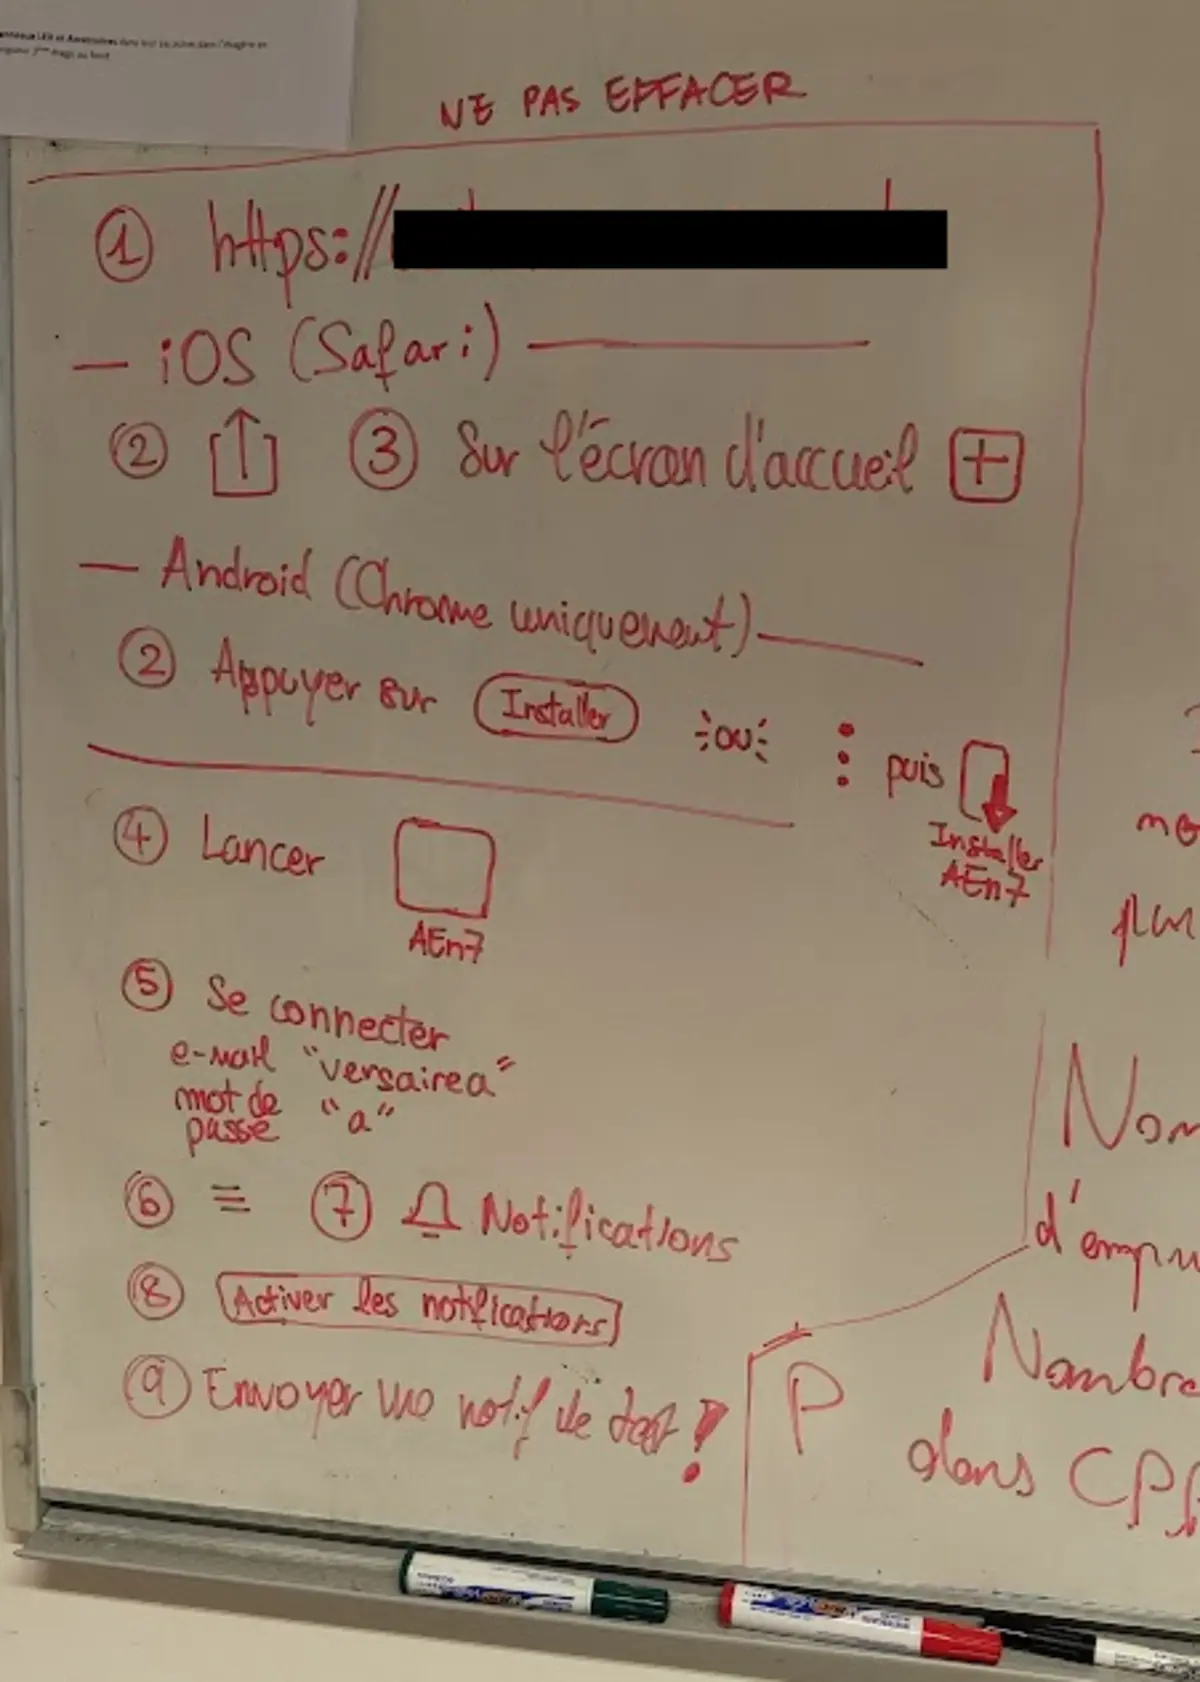 NE PAS EFFACER
① https://
— iOS (Safari) —
② ③ Sur l'écran d'accueil +
— Android (Chrome uniquement) —
② Appuyer sur Installer ou puis
Installer
AEn7
④ Lancer
AEn7
⑤ Se connecter
e-mail "versairea"
mot de
passe "a"
⑥ ≡ ⑦ Notifications
⑧ Activer les notifications
⑨ Envoyer une notif de test !
Nom
d'empru
P Nombre
dans CPP